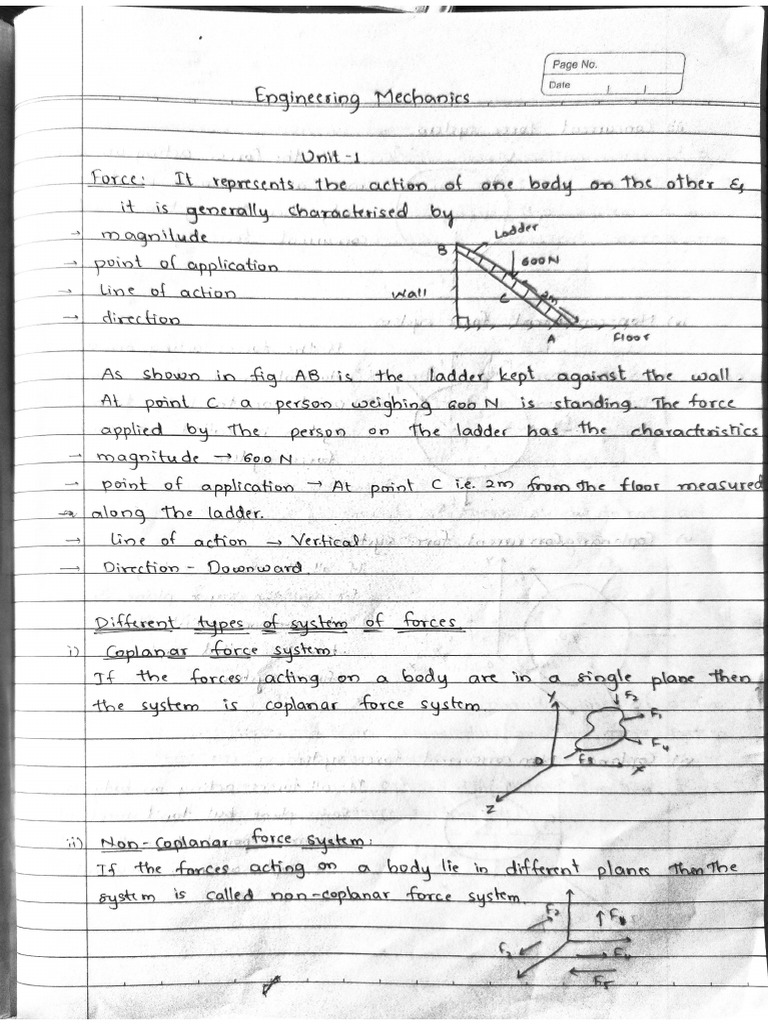 Page No.
Date
Engineering Mechanics
Unit-1
Force: It represents the action of one body on the other &
it is generally characterised by
→ magnitude
→ point of application
→ Line of action
→ direction
Ladder
B
600N
Wall
C
2m
A
Floor
As shown in fig AB is the ladder kept against the wall.
At point C a person weighing 600 N is standing. The force
applied by the person on the ladder has the characteristics
→ magnitude → 600 N
→ point of application → At point C i.e. 2m from the floor measured
→ along the ladder.
→ Line of action → Vertical
→ Direction - Downward.
Different types of system of forces
i) Coplanar force system:
If the forces acting on a body are in a single plane then
the system is coplanar force system
Y
F2
F1
F4
F3
O
X
Z
ii) Non-Coplanar force system:
If the forces acting on a body lie in different planes then the
system is called non-coplanar force system.
F2
F3
F4
F5